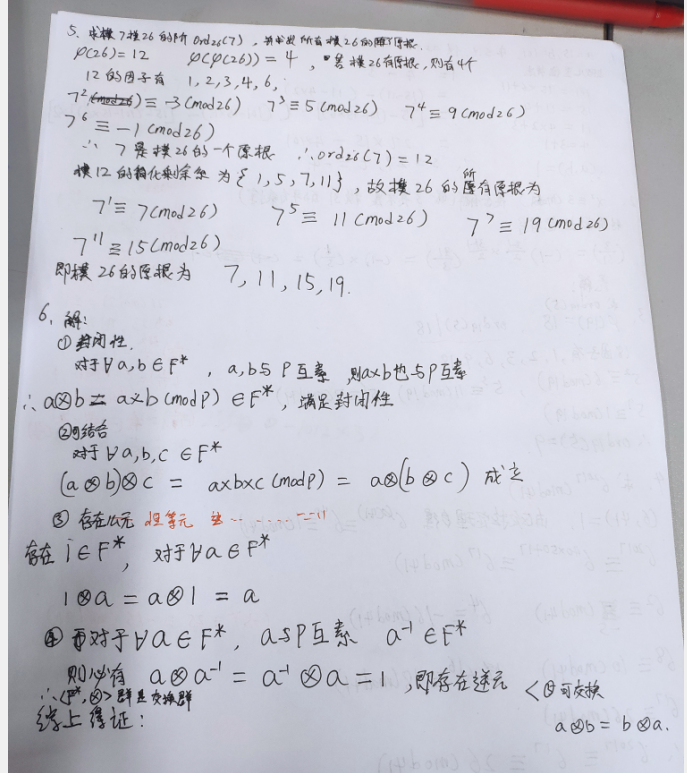 5. 求模7模26的阶 ord₂₆(7), 并求出所有模26的原根.
φ(26)=12 φ(φ(26))=4, 若模26有原根, 则有4个
12的因子有 1,2,3,4,6,
7²≡-3(mod26) 7³≡5(mod26) 7⁴≡9(mod26)
7⁶≡-1(mod26)
∴ 7是模26的一个原根 ∴ord₂₆(7)=12
模12的简化剩余系为{1,5,7,11}, 故模26的所有原根为
7¹≡7(mod26) 7⁵≡11(mod26) 7⁷≡19(mod26)
7¹¹≡15(mod26)
即模26的原根为 7,11,15,19.
6. 解:
①封闭性.
对于∀a,b∈F*, a,b与P互素, 则a×b也与P互素
∴a⊗b=a×b(modP)∈F*, 满足封闭性
②可结合
对于∀a,b,c∈F*
(a⊗b)⊗c = a×b×c(modP) = a⊗(b⊗c) 成立
③存在幺元
存在1∈F*, 对于∀a∈F*
1⊗a=a⊗1=a
④对于∀a∈F*, a与P互素 a⁻¹∈F*
则必有 a⊗a⁻¹=a⁻¹⊗a=1, 即存在逆元 <⑤可交换
a⊗b=b⊗a.
∴<F*,⊗>群是交换群
综上得证: